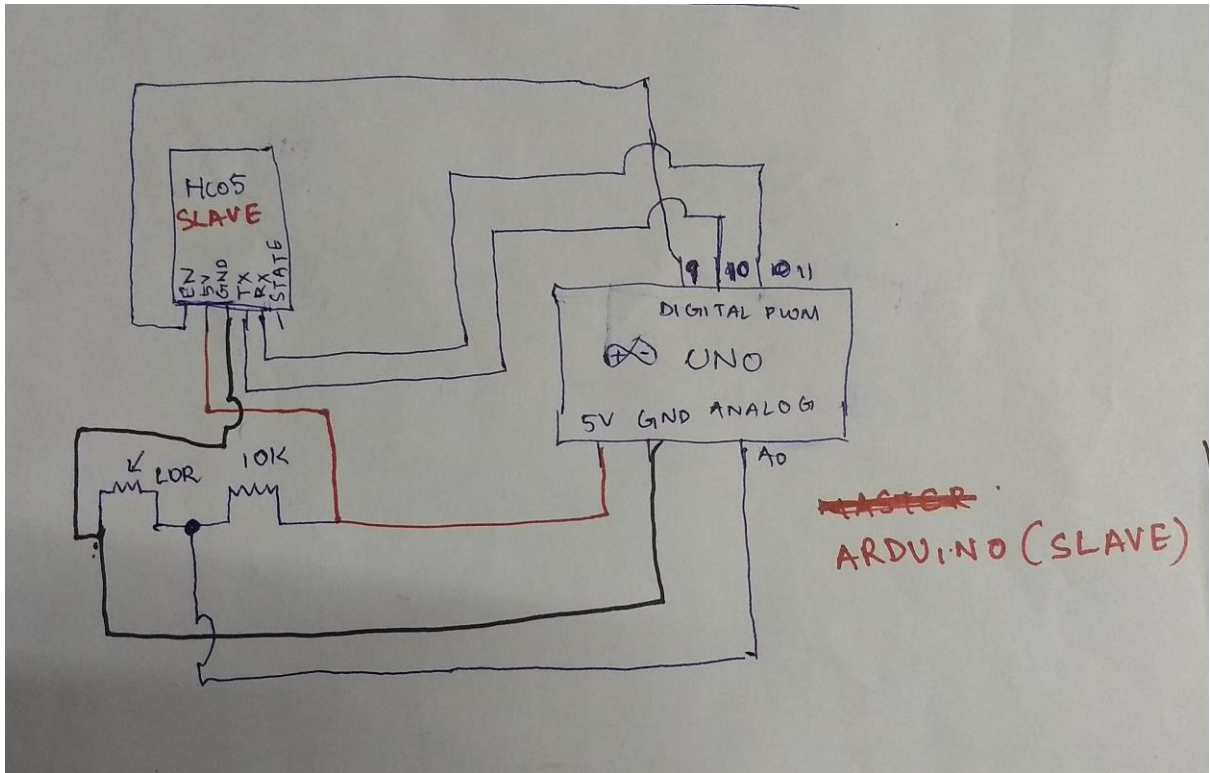 HC05
SLAVE
EN
5V
GND
TX
RX
STATE
9 10 11
DIGITAL PWM
UNO
5V GND ANALOG
A0
LDR
10K
MASTER
ARDUINO (SLAVE)